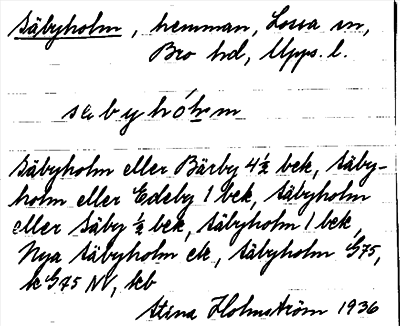 Säbyholm, hemman, Lossa sn,
Bro hd, Upps. l.
sɛbyhóḷm
Säbyholm eller Bärby 4½ bek, Säby-
holm eller Edeby 1 bek, Säbyholm
eller Säby ½ bek, Säbyholm 1 bek,
Nya Säbyholm ek, Säbyholm G75,
k G75 NV, kb
Stina Holmström 1936